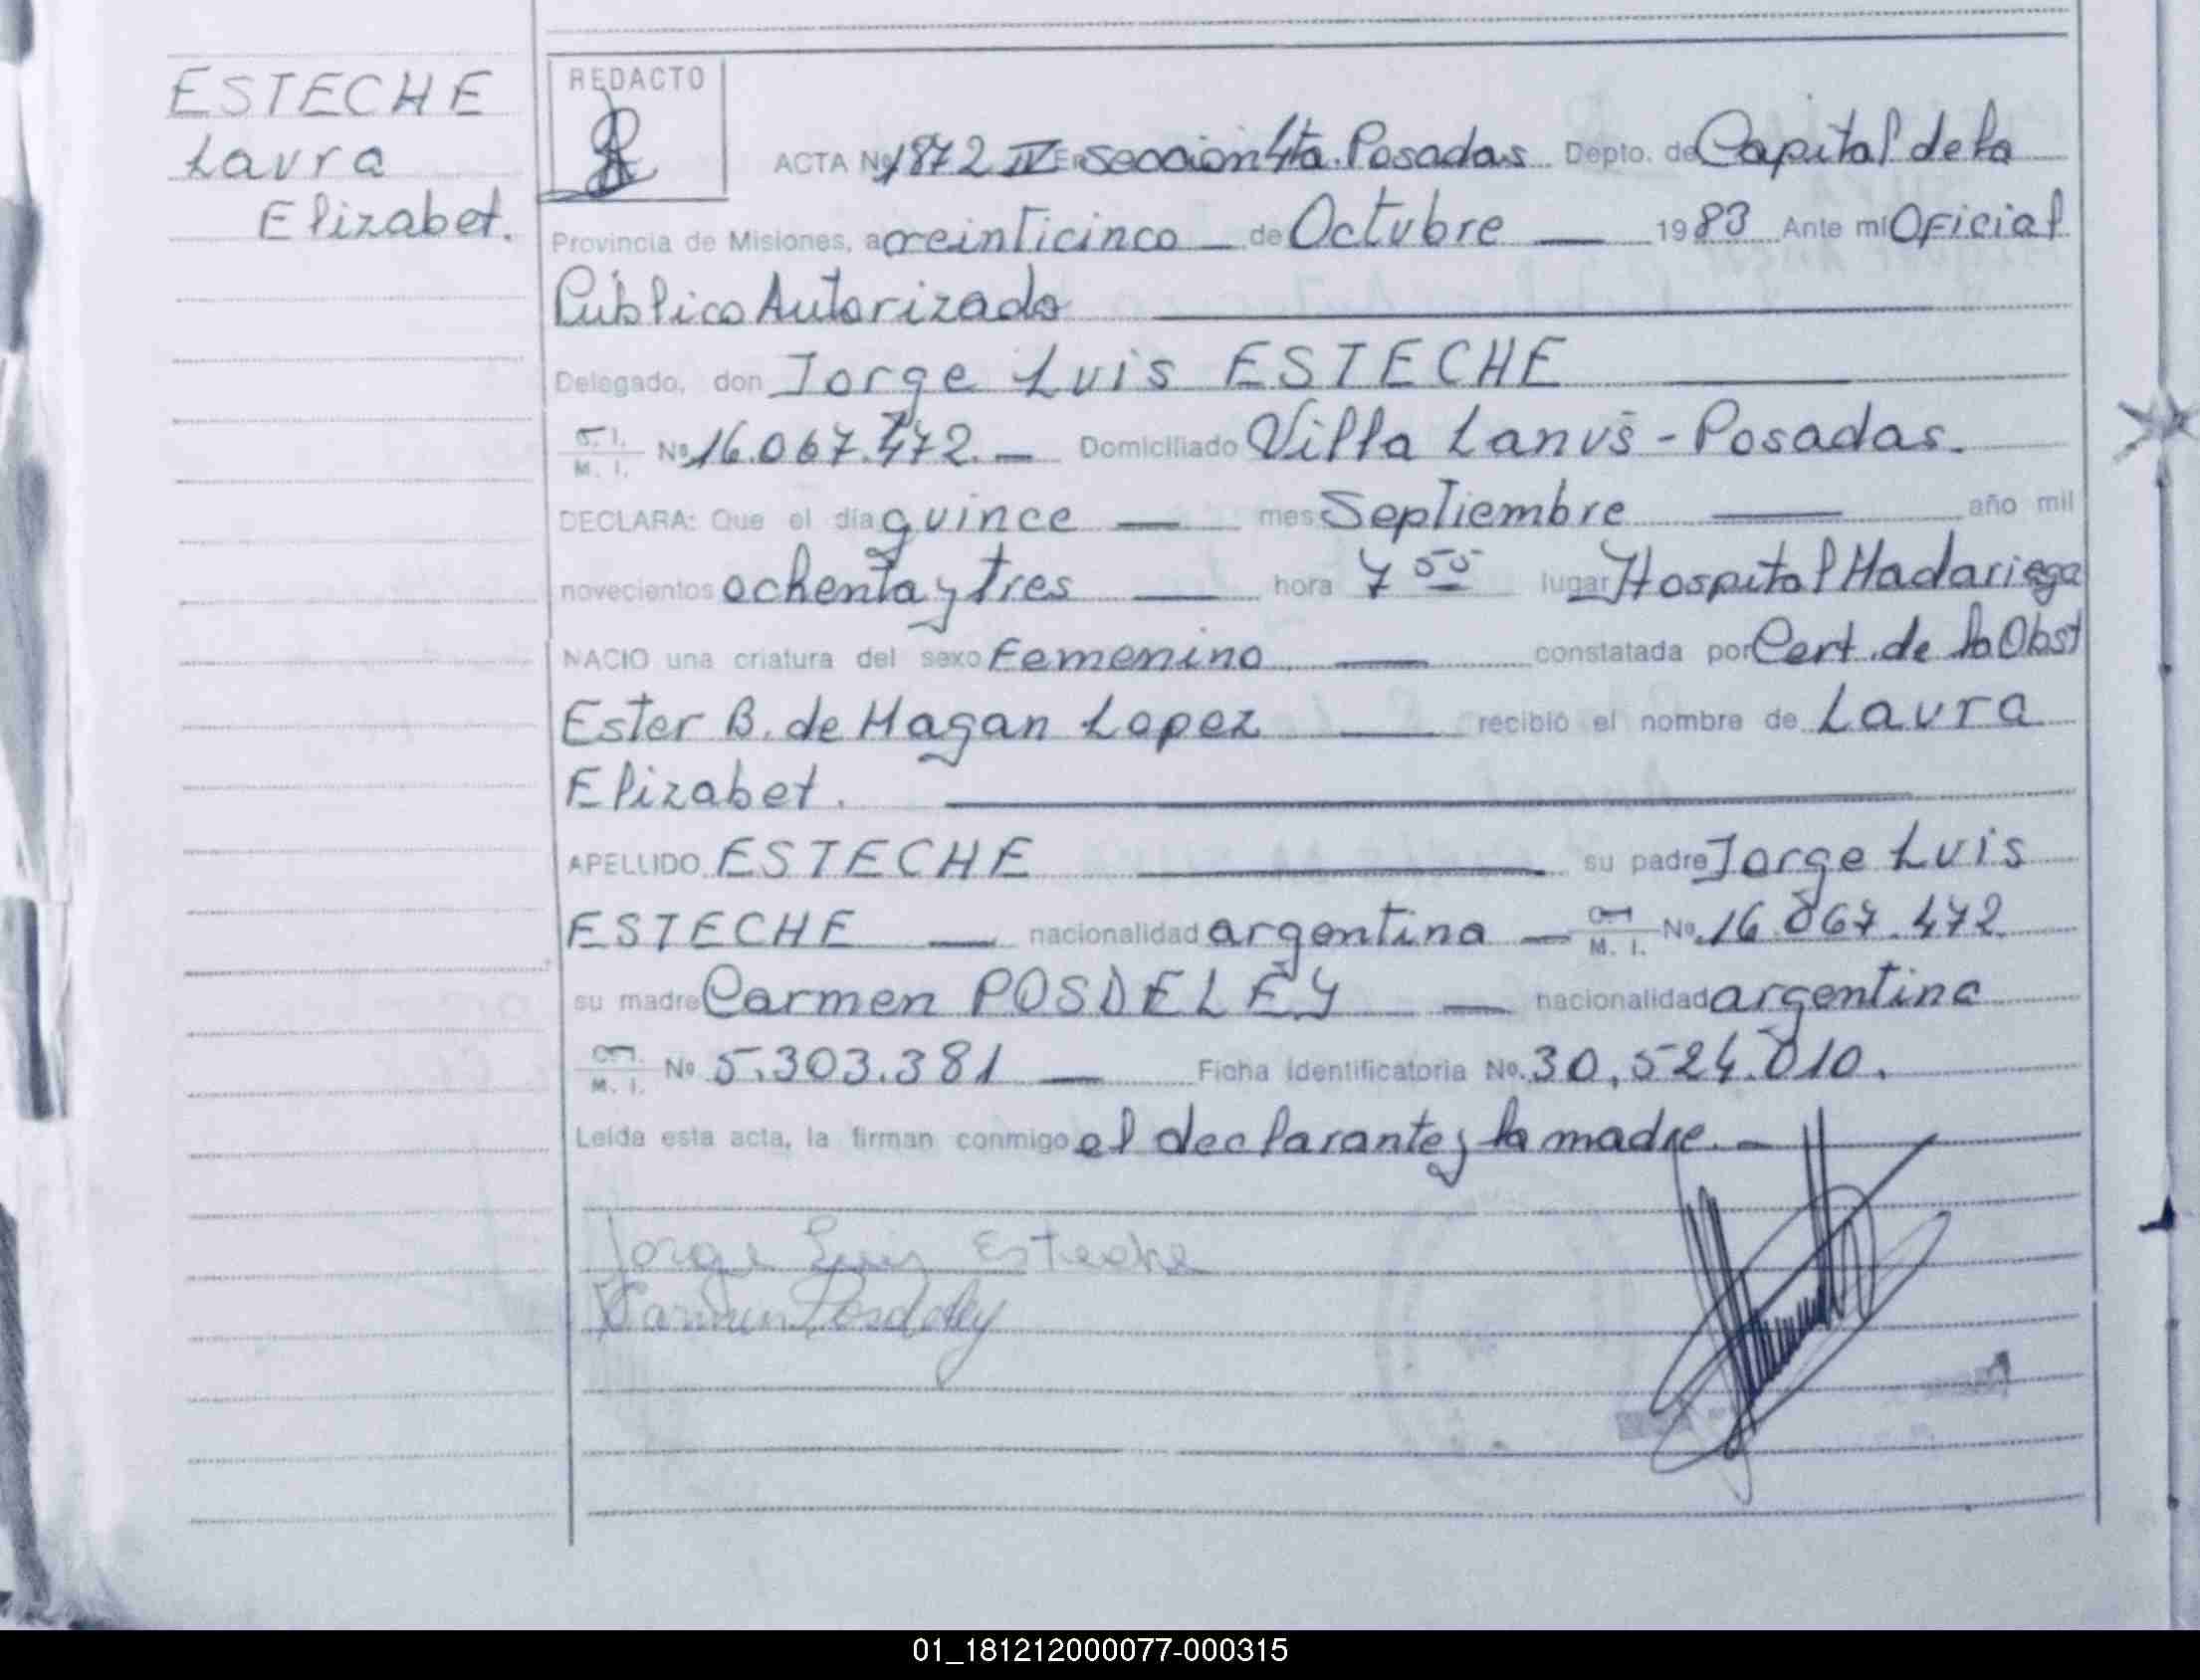 ESTECHE
Laura
Elizabet.
REDACTO
ACTA Nº 1872 IV En Sección 4ta. Posadas Depto. de Capital de la
Provincia de Misiones, a veinticinco — de Octubre — 1983 Ante mi Oficial
Público Autorizado
Delegado, don Jorge Luis ESTECHE
C. I.
M. I. Nº 16.067.472. — Domiciliado Villa Lanús - Posadas.
DECLARA: Que el día quince — mes Septiembre — año mil
novecientos ochenta y tres — hora 7 55 lugar Hospital Madariaga
NACIO una criatura del sexo Femenino — constatada por Cert. de la Obst
Ester B. de Magan Lopez — recibió el nombre de Laura
Elizabet.
APELLIDO ESTECHE — su padre Jorge Luis
ESTECHE — nacionalidad argentina — M. I. Nº 16.067.472
su madre Carmen POSDELEY — nacionalidad argentina
M. I. Nº 5.303.381 — Ficha Identificatoria Nº 30.524.010.
Leída esta acta, la firman conmigo el declarante y la madre. —
Jorge Luis Esteche
Carmen Posdeley
01_181212000077-000315